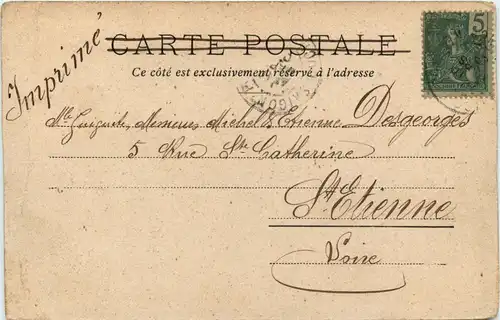 Imprimé
CARTE POSTALE
Ce côté est exclusivement réservé à l'adresse
5
Mlle Messieurs Michel & Etienne Desgeorges
5 Rue Ste Catherine
St Etienne
Loire